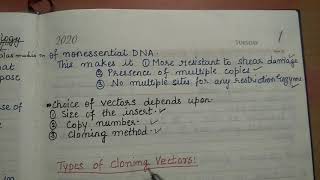 ology
2020
TUESDAY
1
of nonessential DNA.
This makes it ① More resistant to shear damage
② Presence of multiple copies
③ No multiple sites for any restriction enzyme
that
pose
Choice of vectors depends upon
① Size of the insert.
② Copy number.
③ Cloning method.
se of
Types of cloning Vectors: